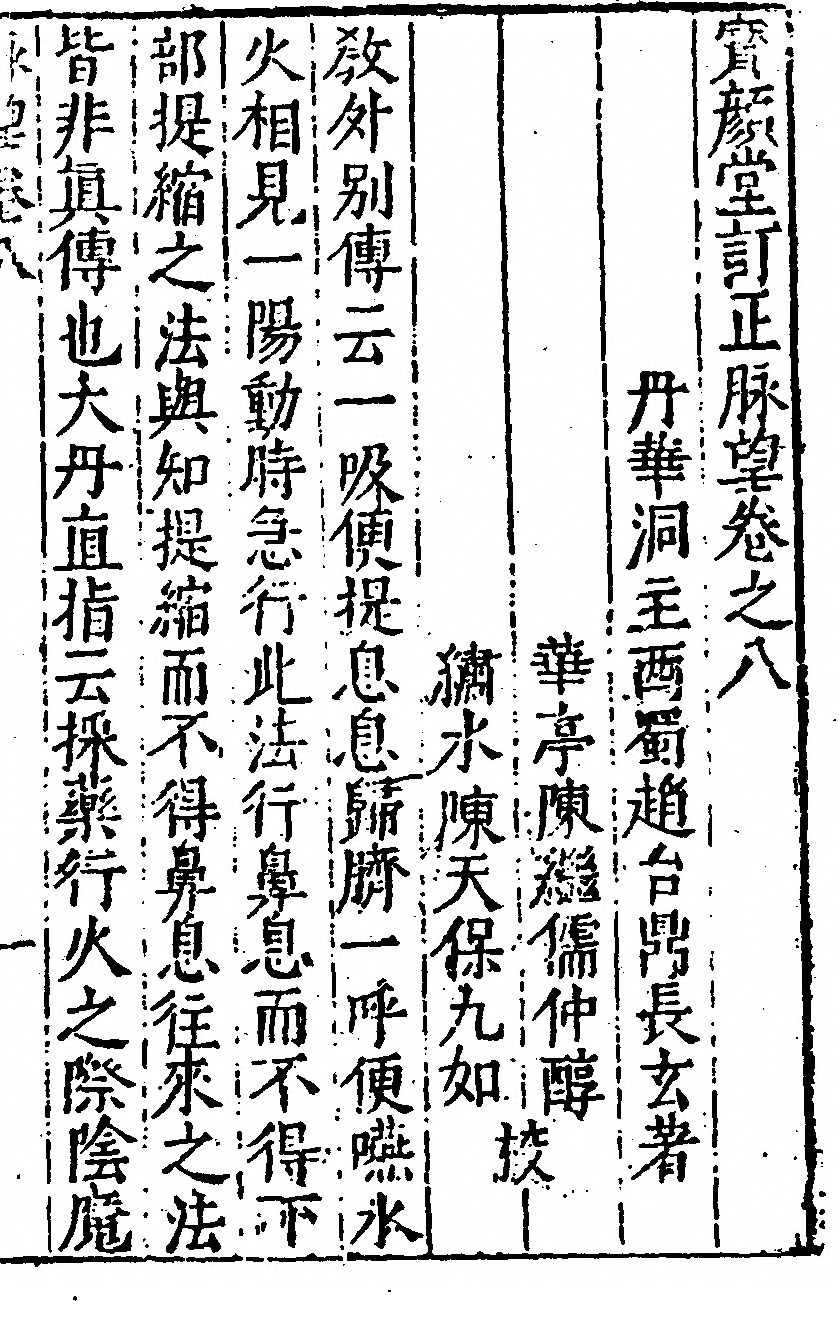 寶顏堂訂正脉望卷之八
丹華洞主西蜀趙台鼎長玄著
華亭陳繼儒仲醇
繡水陳天保九如
挍
教外别傳云一吸便提息息歸臍一呼便嚥水
火相見一陽動時急行此法行鼻息而不得下
部提縮之法與知提縮而不得鼻息往來之法
皆非眞傳也大丹直指云採藥行火之際陰魔
脉望卷八
一